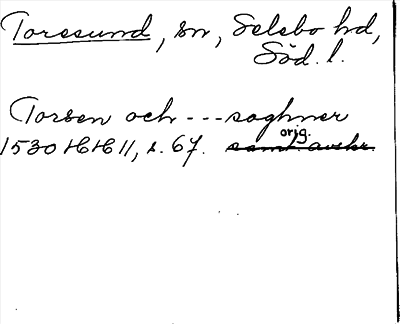 Toresund, sn, Selebo hd,
Söd. l.
Torsen och --- soghner
1530 HH 11, s. 67. orig.
samt. avskr.